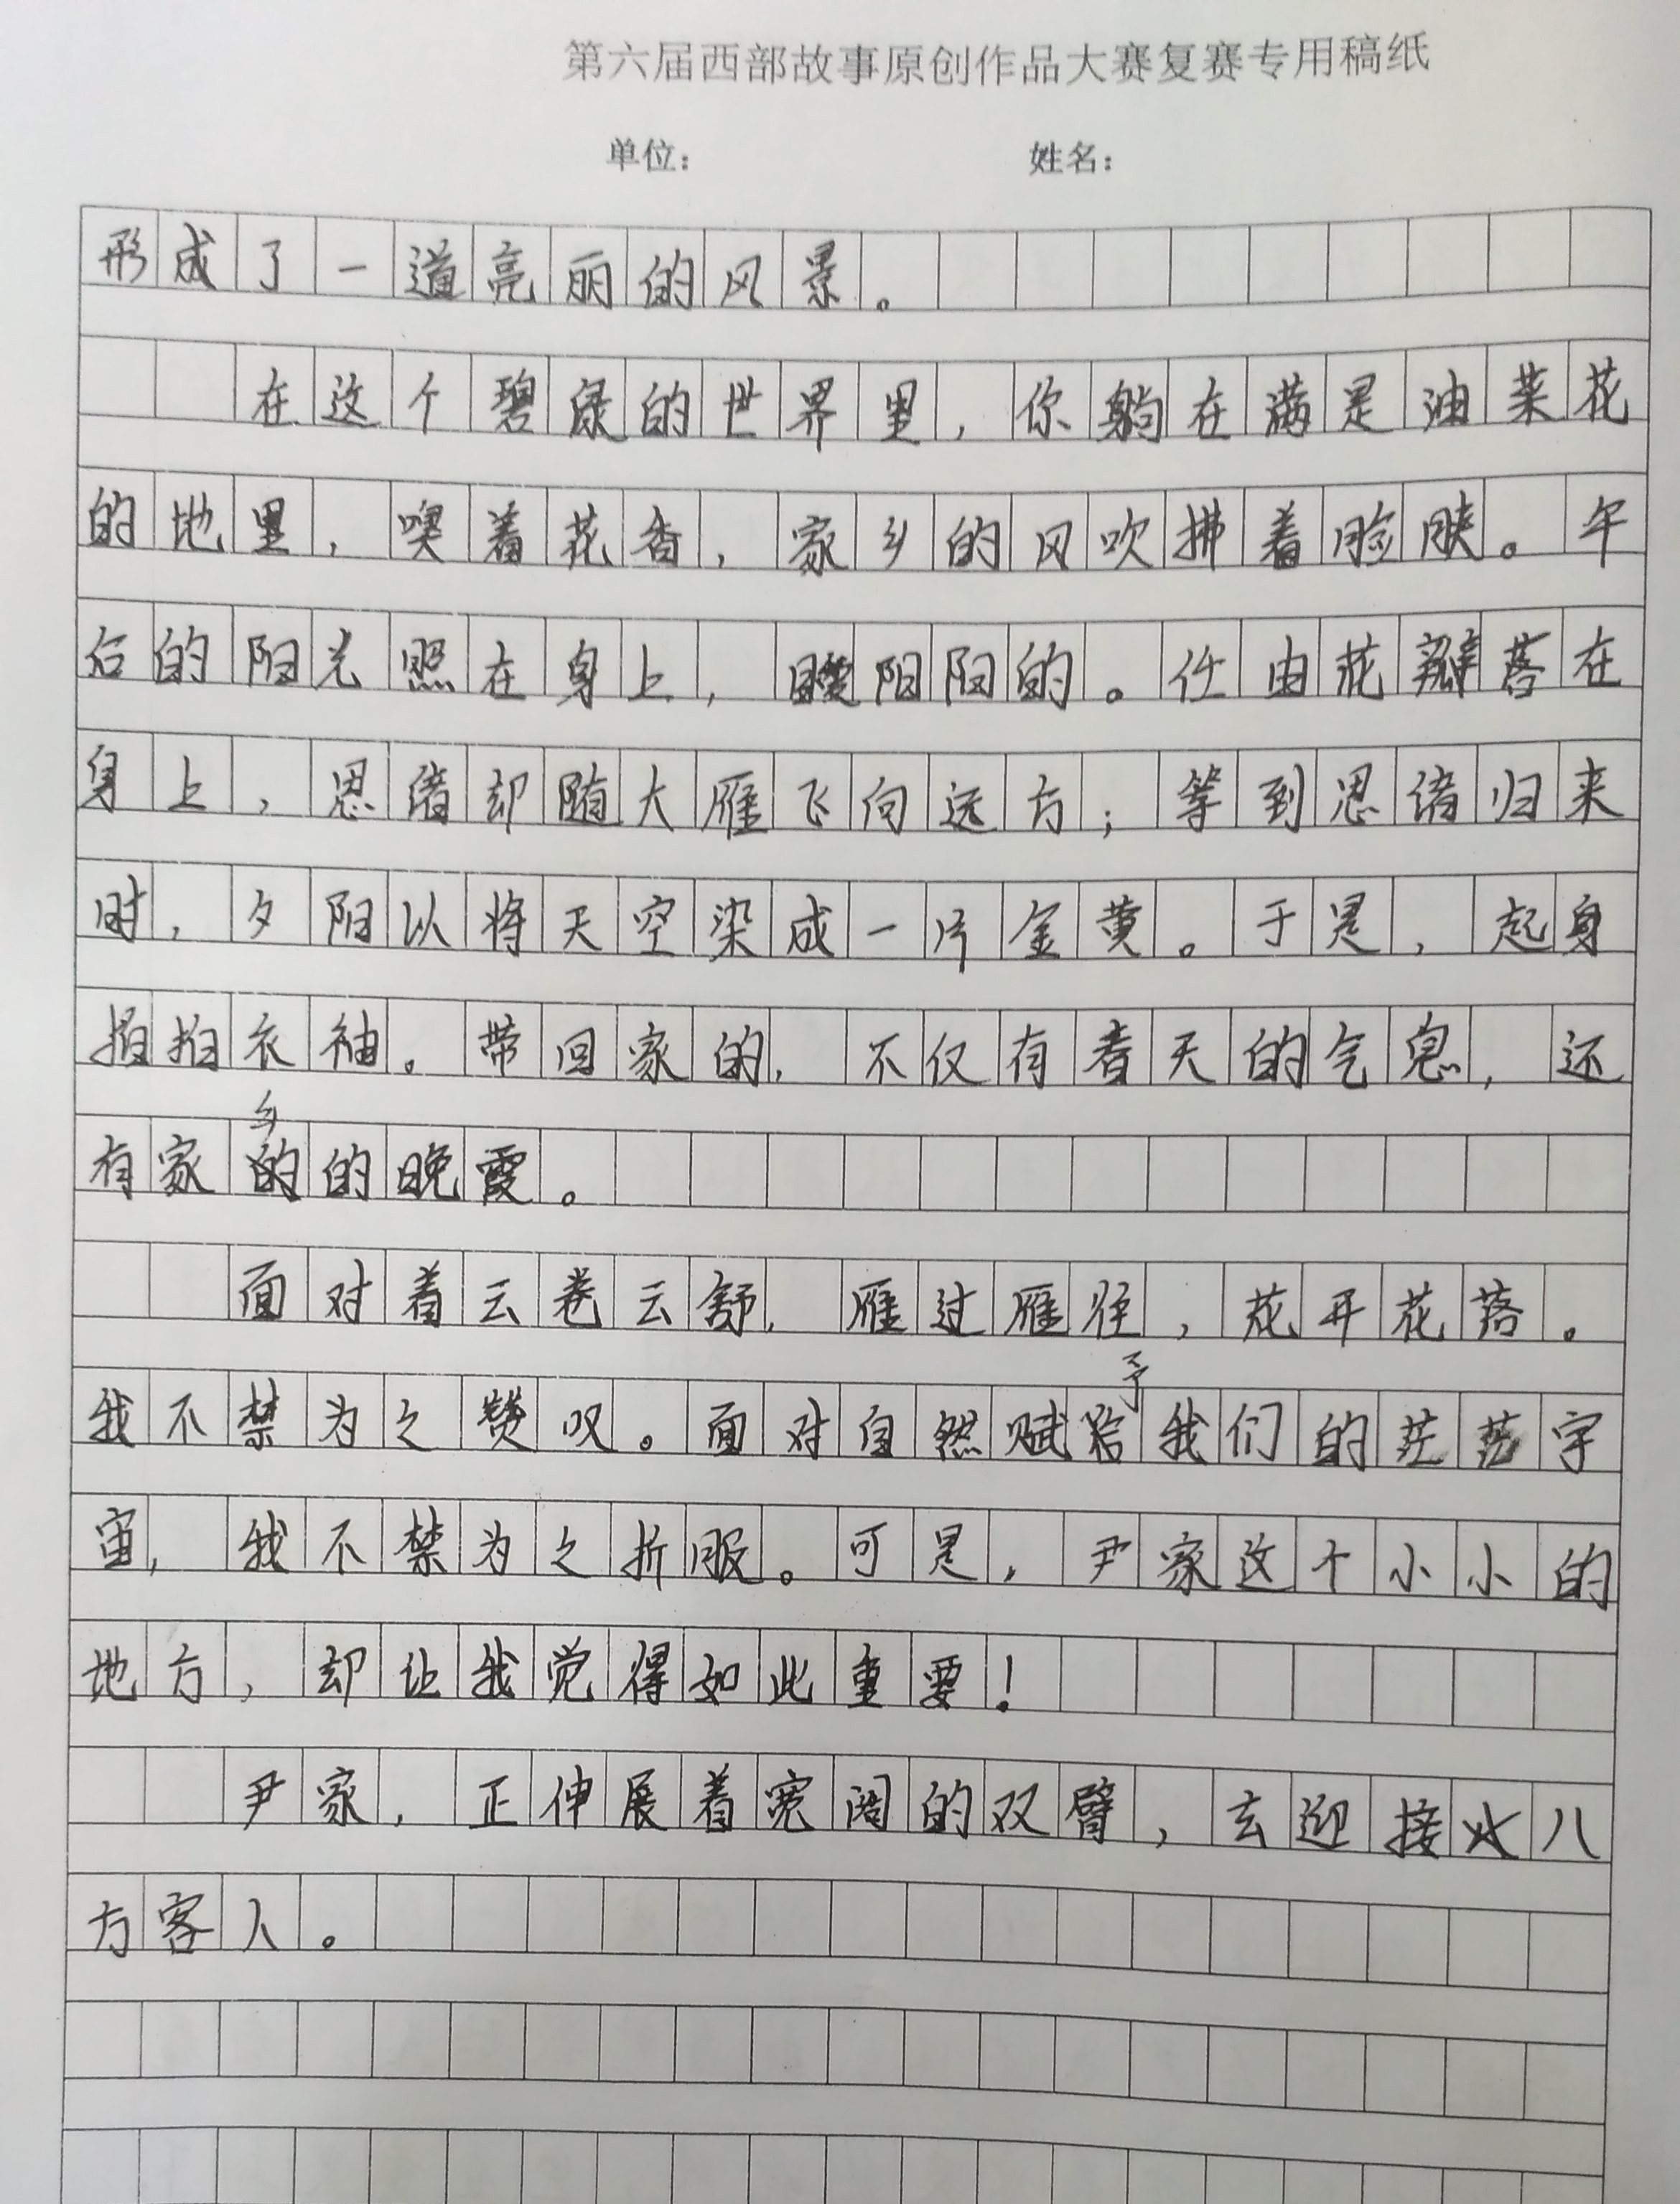 第六届西部故事原创作品大赛复赛专用稿纸
单位： 姓名：
形成了一道亮丽的风景。
在这个碧绿的世界里，你躺在满是油菜花
的地里，嗅着花香，家乡的风吹拂着脸颊。午
后的阳光照在身上，暖阳阳的。任由花瓣落在
身上，思绪却随大雁飞向远方；等到思绪归来
时，夕阳以将天空染成一片金黄。于是，起身
拍拍衣袖。带回家的，不仅有春天的气息，还
有家乡的晚霞。
面对着云卷云舒，雁过雁往，花开花落。
我不禁为之赞叹。面对自然赋予我们的茫茫宇
宙，我不禁为之折服。可是，尹家这个小小的
地方，却让我觉得如此重要！
尹家，正伸展着宽阔的双臂，去迎接八
方客人。